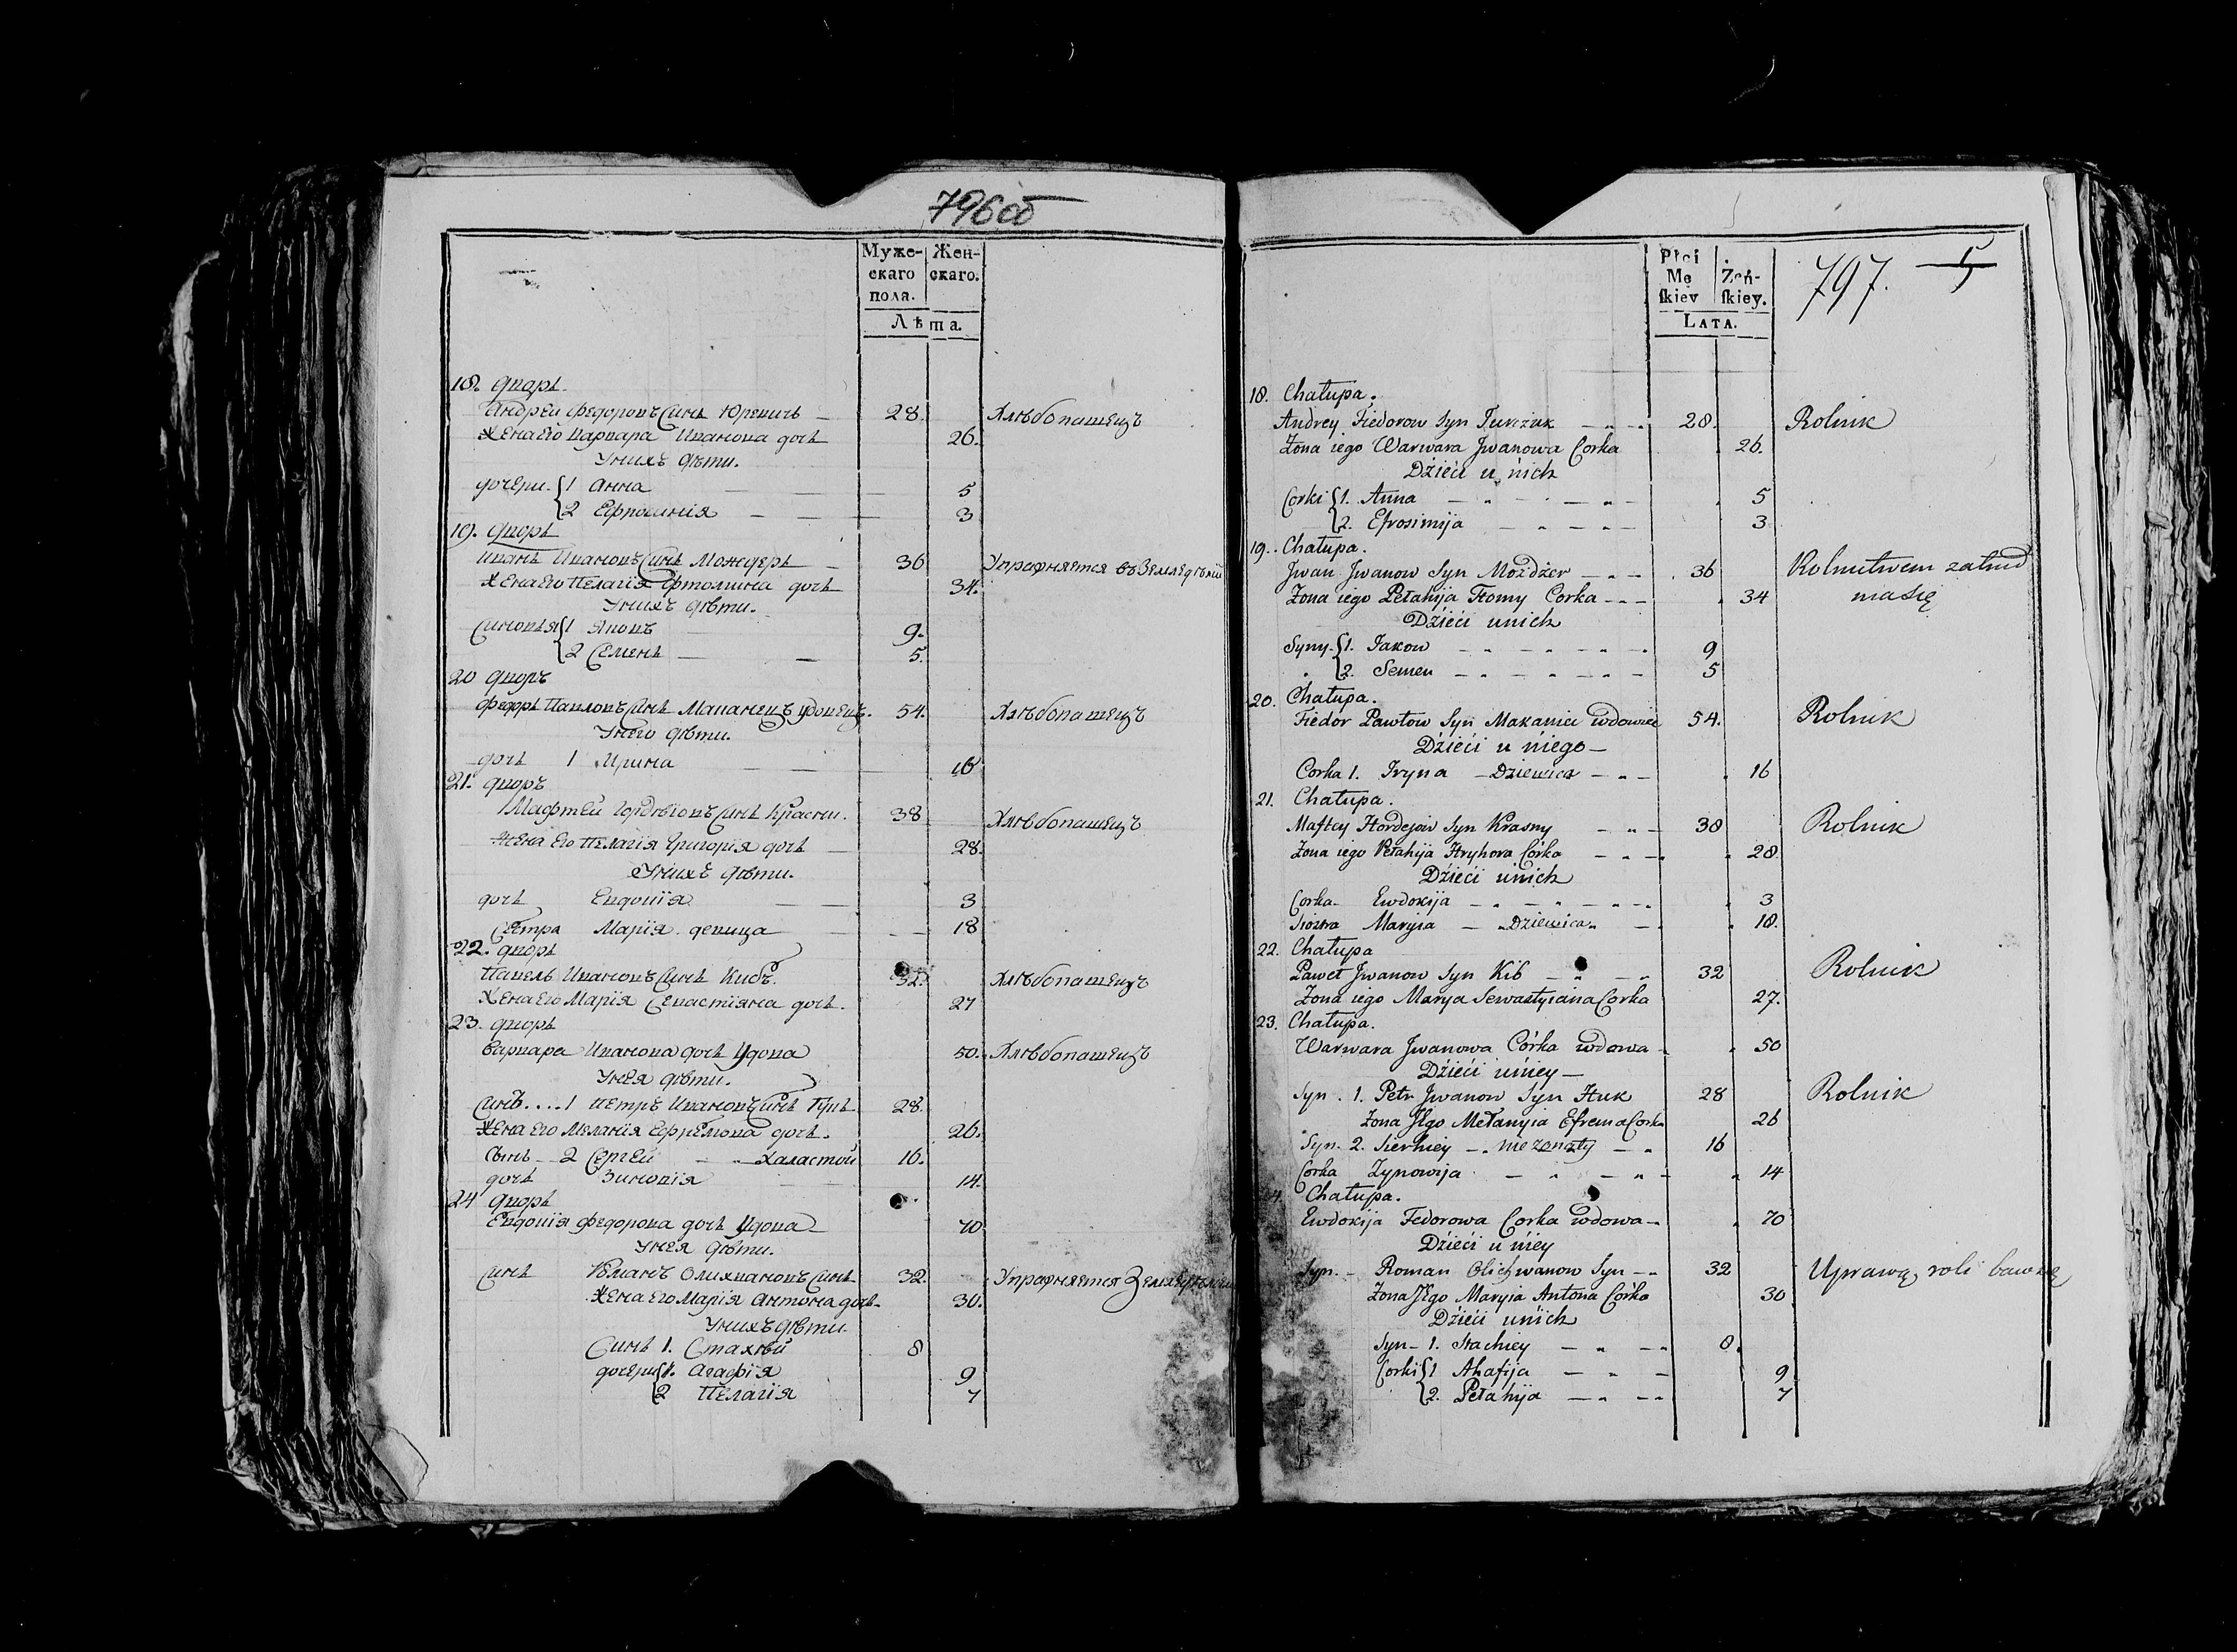 796об
Муже-
скаго
пола.
Жен-
скаго.
Лѣта.
18. дворъ
Андрей Федоровъ Синъ Юревичъ — 28. Хлѣбопашецъ
Жена Его Варвара Иванова дочь 26.
У нихъ дѣти.
дочери. 1 Анна — 5
2 Ефросинія — 3
19. дворъ
Иванъ Ивановъ Синъ Можджеръ — 36 Упражняется въ Земледѣліи
Жена Его Пелагія дочь 34.
У нихъ дѣти.
Синовья 1 Яковъ 9.
2 Семенъ — 5.
20 дворъ
Федоръ Павловъ Синъ Маканецъ удовецъ. 54. Хлѣбопашецъ
У него дѣти.
дочь 1 Ирина 16
21. дворъ
Мафтей Гордѣіовъ Синъ Красни. 38 Хлѣбопашецъ
Жена Его Пелагія Григорія дочь — 28.
У нихъ дѣти.
дочь Евдокія 3
Сестра Марія девица 18
22. дворъ
Павелъ Ивановъ Синъ Кибъ. 32. Хлѣбопашецъ
Жена Его Марія Севастіяна дочь. 27
23. дворъ
Варвара Иванова дочь Удова 50. Хлѣбопашецъ
У нея дѣти.
Синъ....1 Петръ Ивановъ Синъ Гукъ 28.
Жена Его Меланія Ефремова дочь. 26.
Сынъ — 2 Сергей — Халастой 16.
дочь Зиновія 14.
24 дворъ
Евдокія Федорова дочь Удова 70
У нея дѣти.
Синъ Романъ Олихвановъ Синъ 32. Упражняется Земледѣліи
Жена Его Марія Антона дочь 30.
У нихъ дѣти.
Синъ 1. Стахѣй 8
дочери 1. Агафія 9
2 Пелагія 7
Płci
Mę
skiey
Żeń-
skiey.
LATA.
797. 5
18. Chałupa.
Andrey Fiedorow Syn Jurczuk 28. Rolnik
Żona iego Warwara Jwanowa Corka 26.
Dźieći u nich
Corki 1. Anna 5
2. Efrosimija 3
19. Chałupa.
Jwan Jwanow Syn Mozdżer 36 Rolnictwem zatrud
Żona iego Pełahija Homy Corka 34 nia się
Dźieći u nich
Syny 1. Jakow 9
2. Semen 5
20. Chałupa.
Fiedor Pawłow Syn Makaniec wdowiec 54. Rolnik
Dźieći u niego —
Corka 1. Iryna — Dziewica 16
21. Chałupa.
Maftey Hordejow Syn Krasny 38 Rolnik
Żona iego Pełahija Hryhora Córka 28.
Dźieći u nich
Corka Ewdokija 3
Siostra Maryia — Dziewica 18.
22. Chałupa
Paweł Jwanow Syn Kib 32 Rolnik
Żona iego Marya Sewastyiana Corka 27.
23. Chałupa.
Warwara Jwanowa Córka wdowa 50
Dźieći u niey —
Syn. 1. Petr Jwanow Syn Huk 28 Rolnik
Żona Jego Mełanyia Efrema Corka 26
Syn. 2. Sierhiey — nie zonaty 16
Corka Zynowija 14
4. Chałupa.
Ewdokija Fedorowa Corka wdowa 70
Dźieći u niey
Syn. Roman Olichwanow Syn 32 Uprawą roli bawi się
Żona Jego Maryia Antona Córka 30
Dźieći u nich
Syn 1. Stachiey 8.
Corki 1 Ahafija 9
2. Pełahija 7